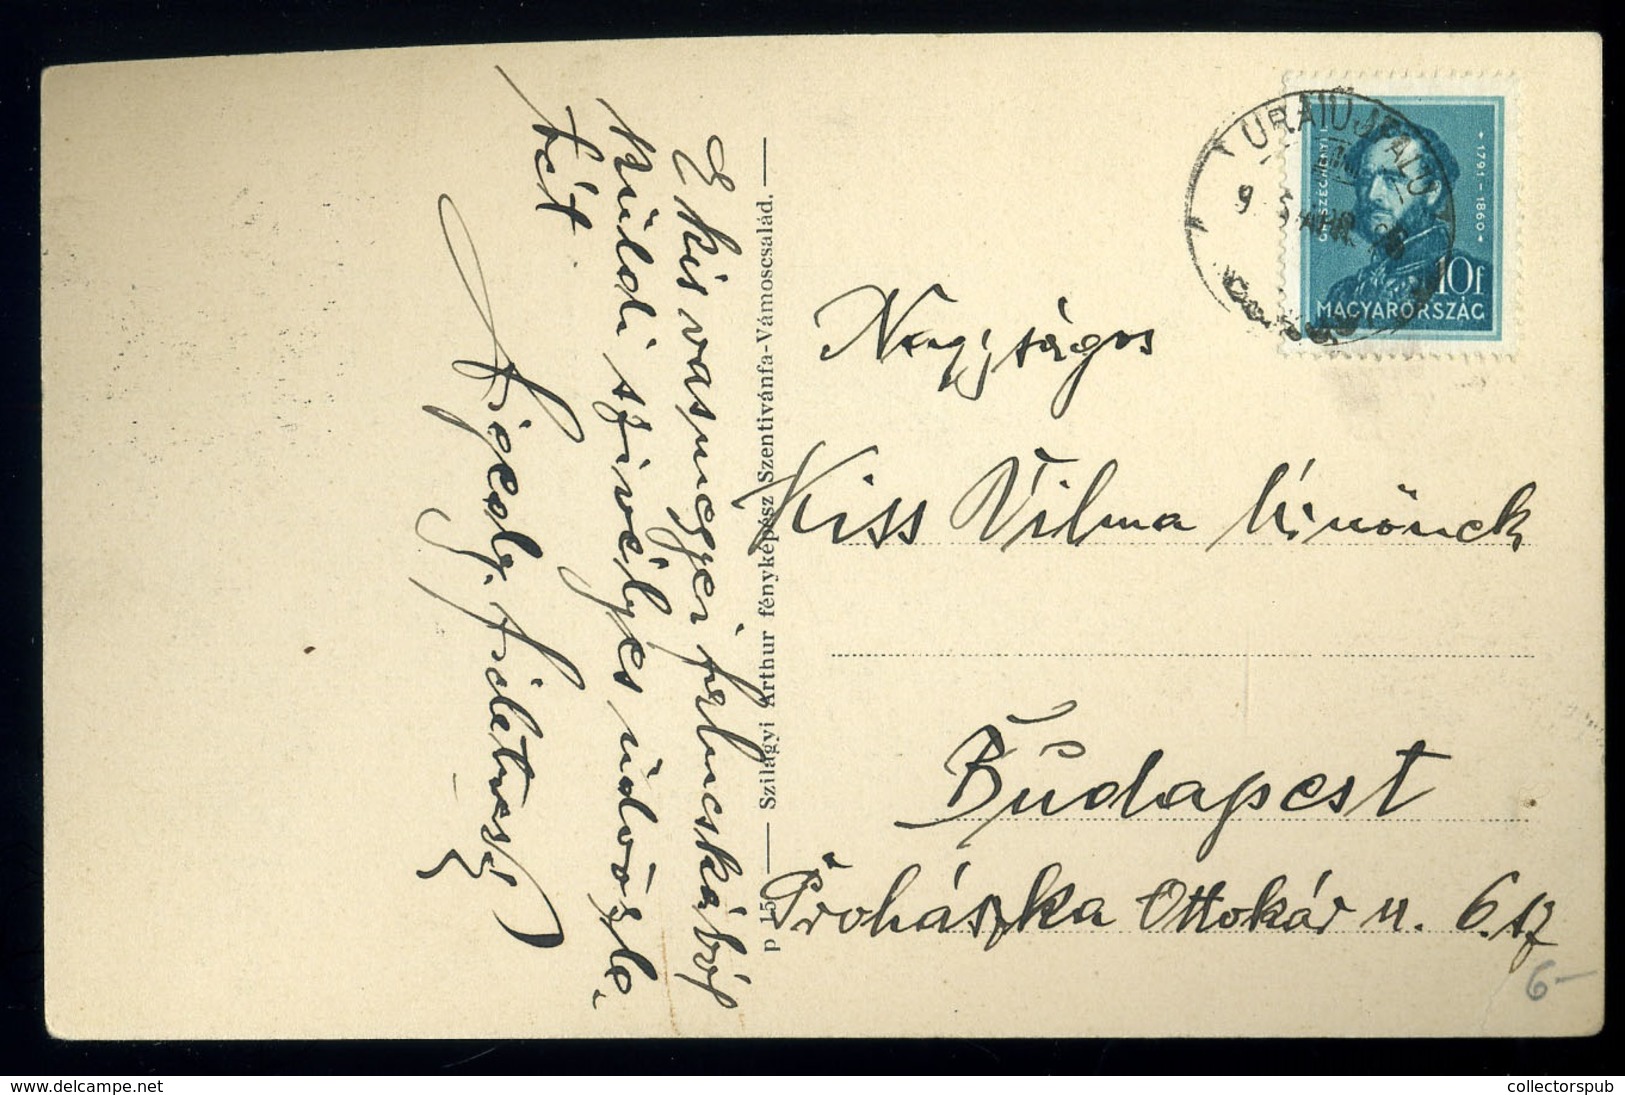 E kis vasmegyei falucskából
küldi szívélyes üdvözle-
tét
p 15 — Szilágyi Arthur fényképész Szentivánfa-Vámoscsalád. —
URAIUJFALU
9
GR. SZÉCHENYI I.
* 1791-1860 *
10f
MAGYARORSZÁG
Nagyságos
Kiss Vilma Úrnőnek
Budapest
Prohászka Ottokár u. 6. sz
6-
www.delcampe.net
collectorspub